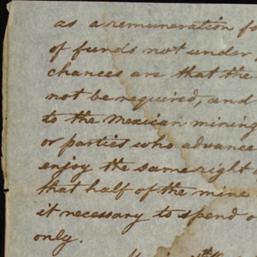 as a remuneration fo
of funds not under
chances are that the
not be required, and
to the Mexican mining
or parties who advance
enjoy the same right
that half of the mine
it necessary to spend o
only.